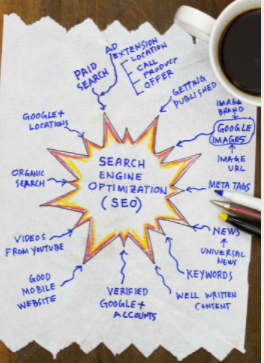 AD
EXTENSION
LOCATION
CALL
PRODUCT
OFFER
PAID
SEARCH
GETTING
PUBLISHED
GOOGLE+
LOCATIONS
IMAGE
BRAND
GOOGLE
IMAGES
IMAGE
URL
SEARCH
ENGINE
OPTIMIZATION
(SEO)
ORGANIC
SEARCH
META TAGS
NEWS
UNIVERSAL
NEWS
VIDEOS
FROM YOUTUBE
KEYWORDS
GOOD
MOBILE
WEBSITE
VERIFIED
GOOGLE+
ACCOUNTS
WELL WRITTEN
CONTENT